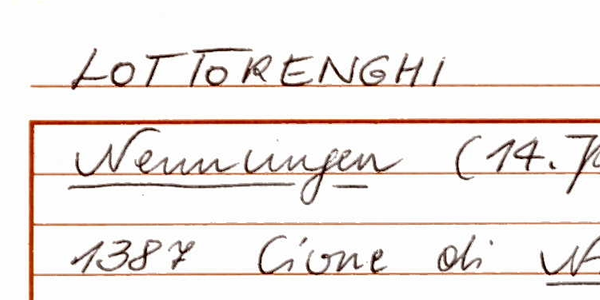 LOTTORENGHI
Nennungen (14.
1387 Cione di